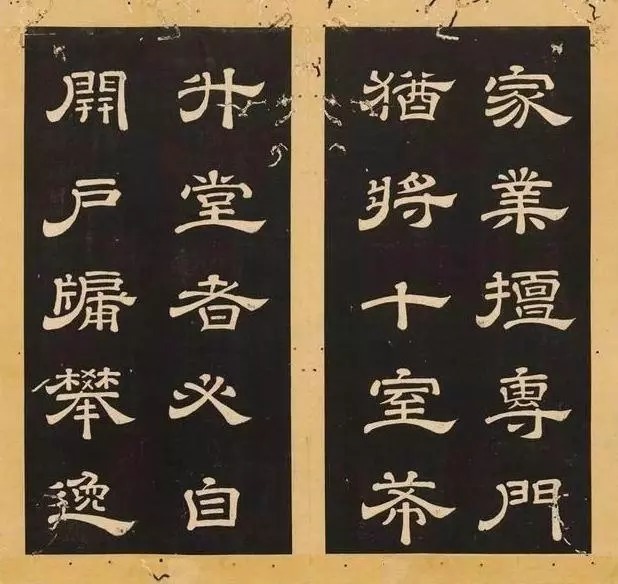 家業擅專門
猶將十室希
升堂者必自
開戶牖攀逸